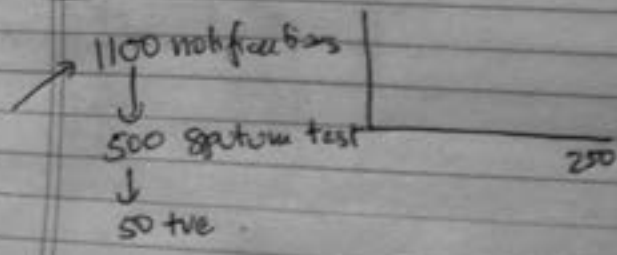 1100 notifications
500 Sputum test
250
50 +ve